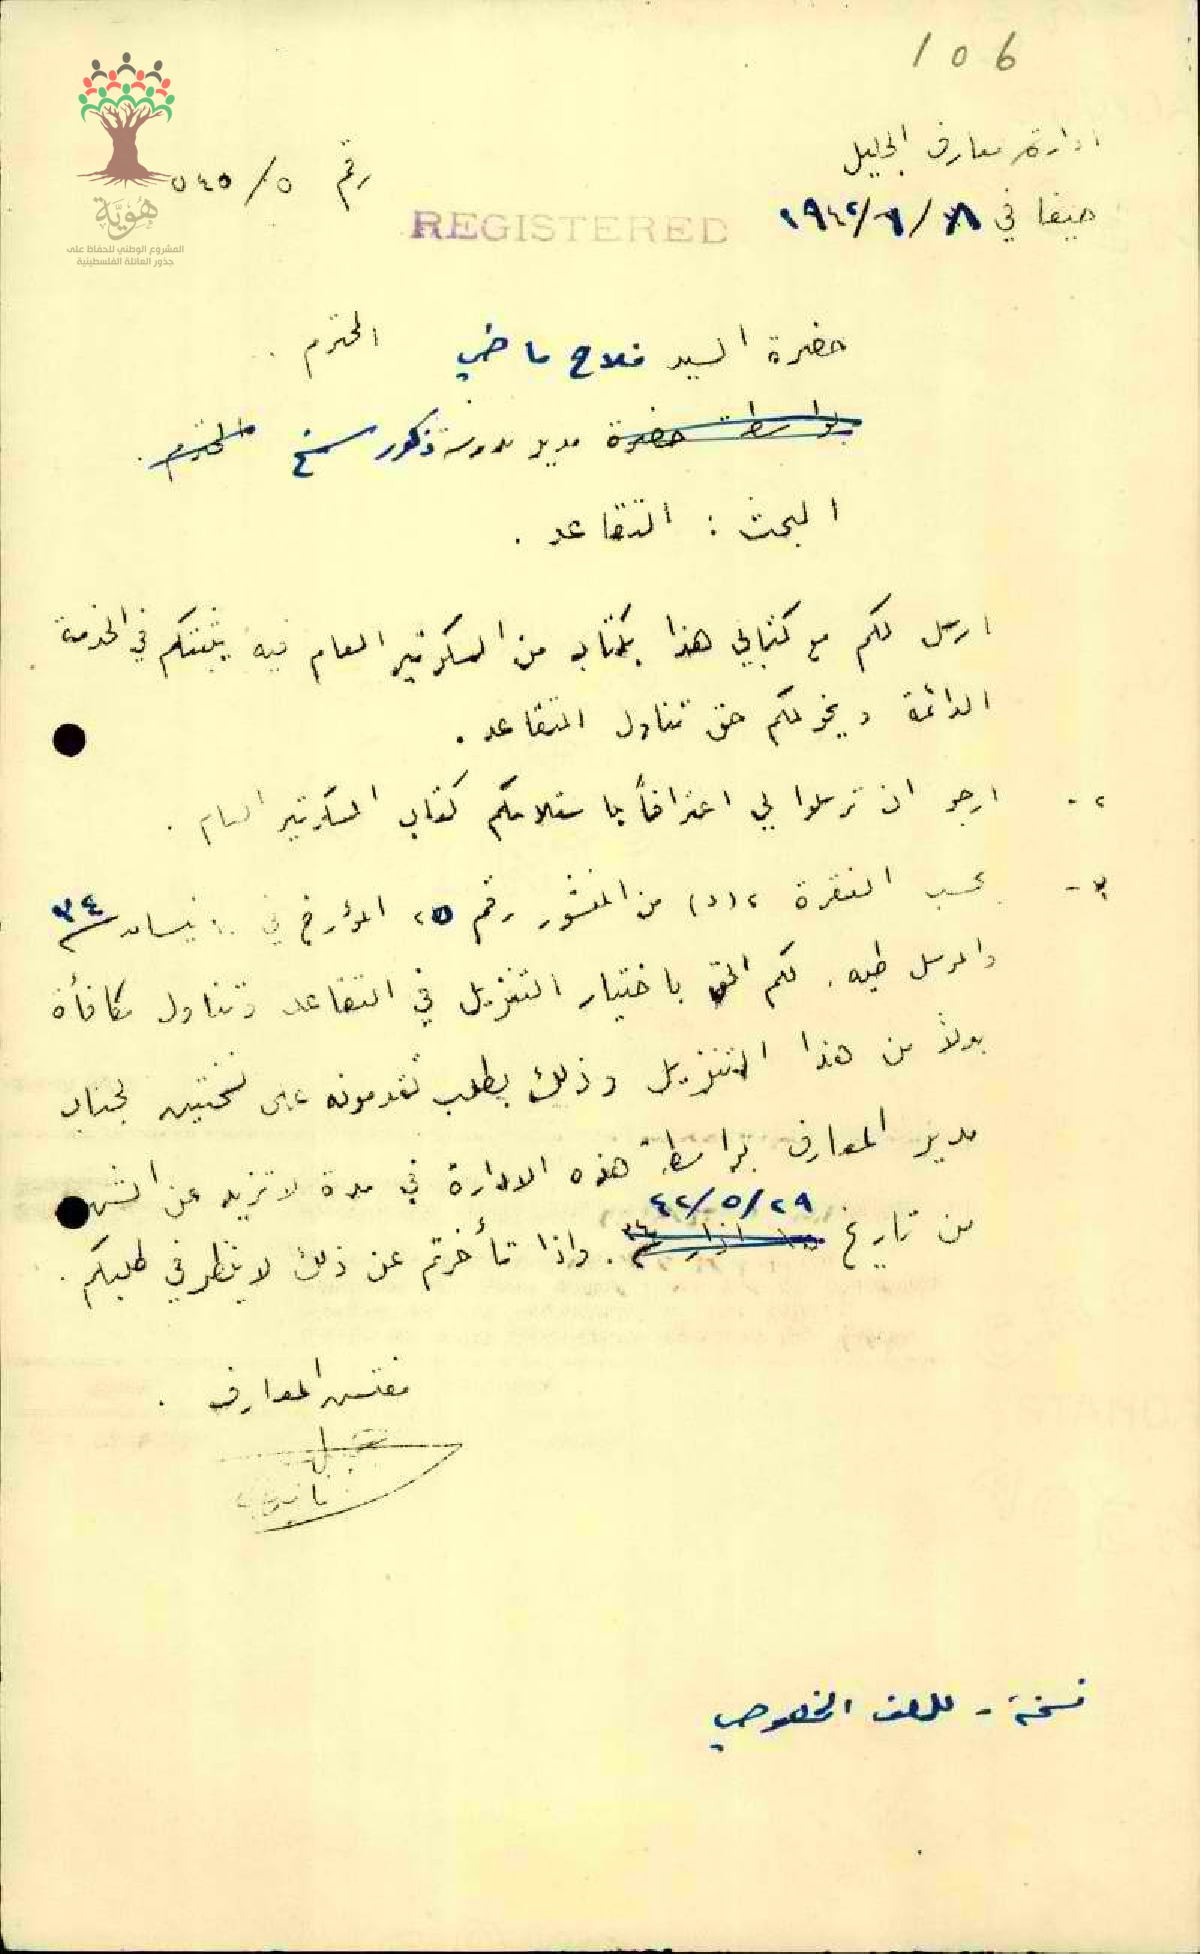 106
ادارة معارف الجليل
رقم ٥٤٥/٥
هُوِيَّة
المشروع الوطني للحفاظ على
جذور العائلة الفلسطينية
REGISTERED
حيفا في ١٩٤٢/٦/
حضرة السيد فلاح ماضي المحترم .
بواسطة حضرة مدير مدرسة ذكور المحترم .
البحث : التقاعد .
ارسل لكم مع كتابي هذا بكتاب من السكرتير العام فيه يثبتكم في الخدمة
الدائمة ويخولكم حق تناول التقاعد .
٢- ارجو ان ترسلوا لي اعترافاً باستلامكم كتاب السكرتير العام .
٣- بحسب الفقرة ٢(د) من المنشور رقم ٢٥ المؤرخ في ١٠ نيسان ٣٤
والمرسل طيه . لكم الحق باختيار التنزيل في التقاعد وتناول مكافأة
بدلاً من هذا التنزيل وذلك بطلب تقدمونه على نسختين لجناب
مدير المعارف بواسطة هذه الادارة في مدة لا تزيد عن الشهر
من تاريخ ٤٢/٥/٢٩ . واذا تأخرتم عن ذلك لا ينظر في طلبكم .
مفتش المعارف .
نسخة - للملف الخصوصي